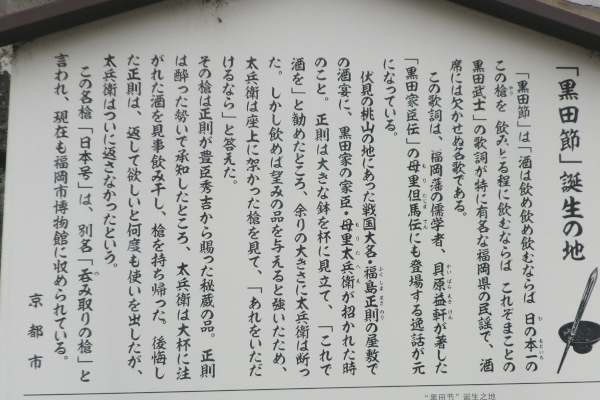 「黒田節」誕生の地
「黒田節」は「酒は飲め飲め飲むならば 日の本一の
この槍を 飲みとる程に飲むならば これぞまことの
黒田武士」の歌詞が特に有名な福岡県の民謡で、酒
席には欠かせぬ名歌である。
この歌詞は、福岡藩の儒学者、貝原益軒が著した
「黒田家臣伝」の母里但馬伝にも登場する逸話が元
になっている。
伏見の桃山の地にあった戦国大名・福島正則の屋敷で
の酒宴に、黒田家の家臣・母里太兵衛が招かれた時
のこと。正則は大きな鉢を杯に見立て、「これで
酒を」と勧めたところ、余りの大きさに太兵衛は断っ
た。しかし飲めば望みの品を与えると強いたため、
太兵衛は座上に架かった槍を見て、「あれをいただ
けるなら」と答えた。
その槍は正則が豊臣秀吉から賜った秘蔵の品。正則
は酔った勢いで承知したところ、太兵衛は大杯に注
がれた酒を見事飲み干し、槍を持ち帰った。後悔し
た正則は、返して欲しいと何度も使いを出したが、
太兵衛はついに返さなかったという。
この名槍「日本号」は、別名「呑み取りの槍」と
言われ、現在も福岡市博物館に収められている。
京都市
"黑田节"诞生之地